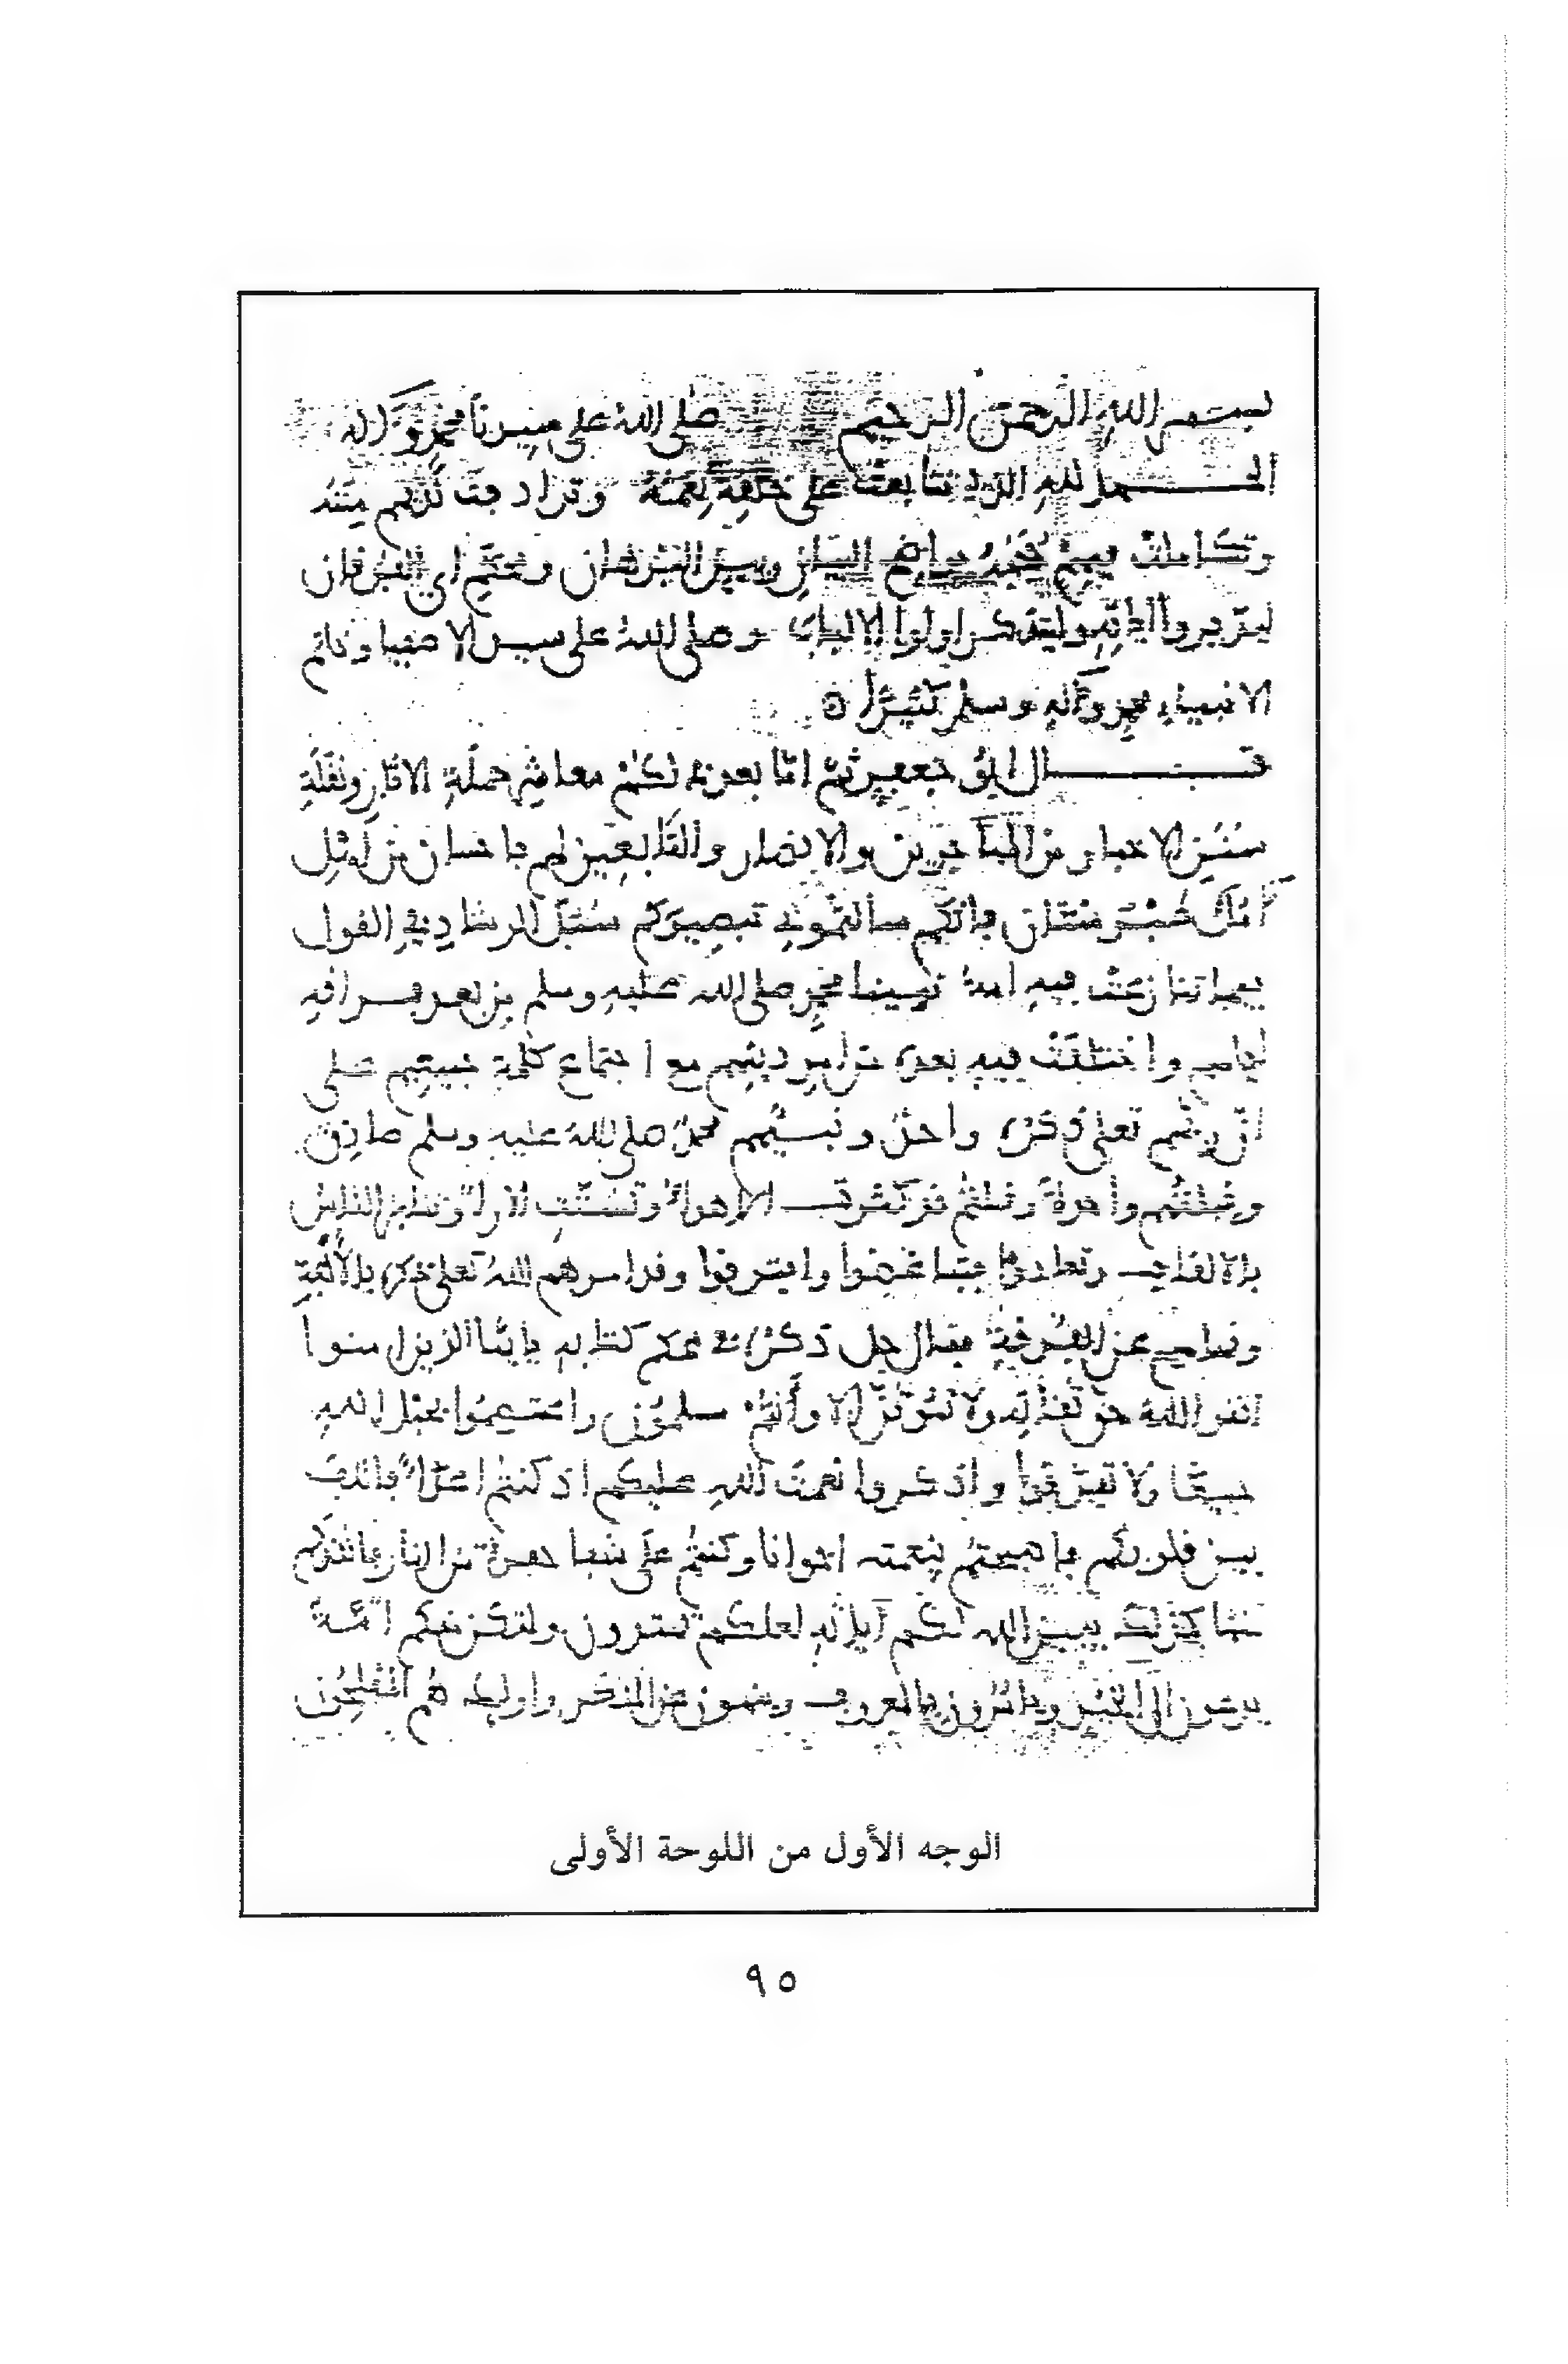 بسم الله الرحمن الرحيم صلى الله على سيدنا محمد وآله
الحمد لله الذي تتابعت على خلقه نعمه وترادفت لديهم مننه
وتكاملت فيهم حججه بواضح البيان وبين البرهان ومحكم آي الفرقان
ليدبروا آياته وليتذكر أولوا الالباب وصلى الله على سيد الاصفيا وخاتم
الانبياء محمد وآله وسلم كثيرا
قال ابو جعفر ثم اما بعد لكم معاشر حملة الاثار ونقلة
سنن الاخبار من المهاجرين والانصار والتابعين لهم باحسان من اهل
فانكم سالتموني تبصيركم سبل الرشاد في القول
فيما تنازعت فيه امة نبينا محمد صلى الله عليه وسلم من بعد فراقه
اياهم واختلفت فيه بعده من امر دينهم مع اجتماع كلمة جميعهم على
ان ربهم تعلى ذكره واحد ونبيهم محمد صلى الله عليه وسلم صادق
وقبلتهم واحدة وقلتم قد كثرت الاهواء وتشتت الاراء وتنابز الناس
بالالقاب وتعادوا فتباغضوا وافترقوا وقد امرهم الله تعلى ذكره بالألفة
ونهاهم عن الفرقة فقال جل ذكره في محكم كتابه يايها الذين امنوا
اتقوا الله حق تقاته ولا تموتن إلا وأنتم مسلمون واعتصموا بحبل الله
جميعا ولا تفرقوا واذكروا نعمت الله عليكم اذ كنتم اعداء فالف
بين قلوبكم فاصبحتم بنعمته اخوانا وكنتم على شفا حفرة من النار فانقذكم
منها كذلك يبين الله لكم آياته لعلكم تهتدون ولتكن منكم امة
يدعون الى الخير ويامرون بالمعروف وينهون عن المنكر واوليك هم المفلحون
الوجه الأول من اللوحة الأولى
٩٥